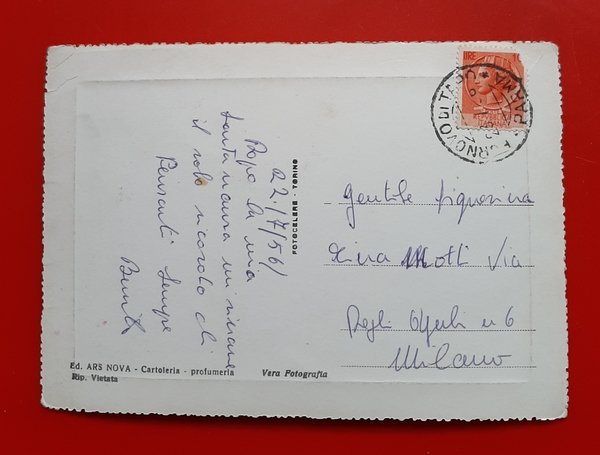 22/7/56
Dopo la mia
lontananza mi rimane
il solo ricordo di
Pensarti Sempre
FOTOCELERE - TORINO
LIRE
FORNOVO DI TARO
PARMA
Gentile Signorina
Motti Via
Degli n 6
Milano
Ed. ARS NOVA - Cartoleria - profumeria
Vera Fotografia
Rip. Vietata